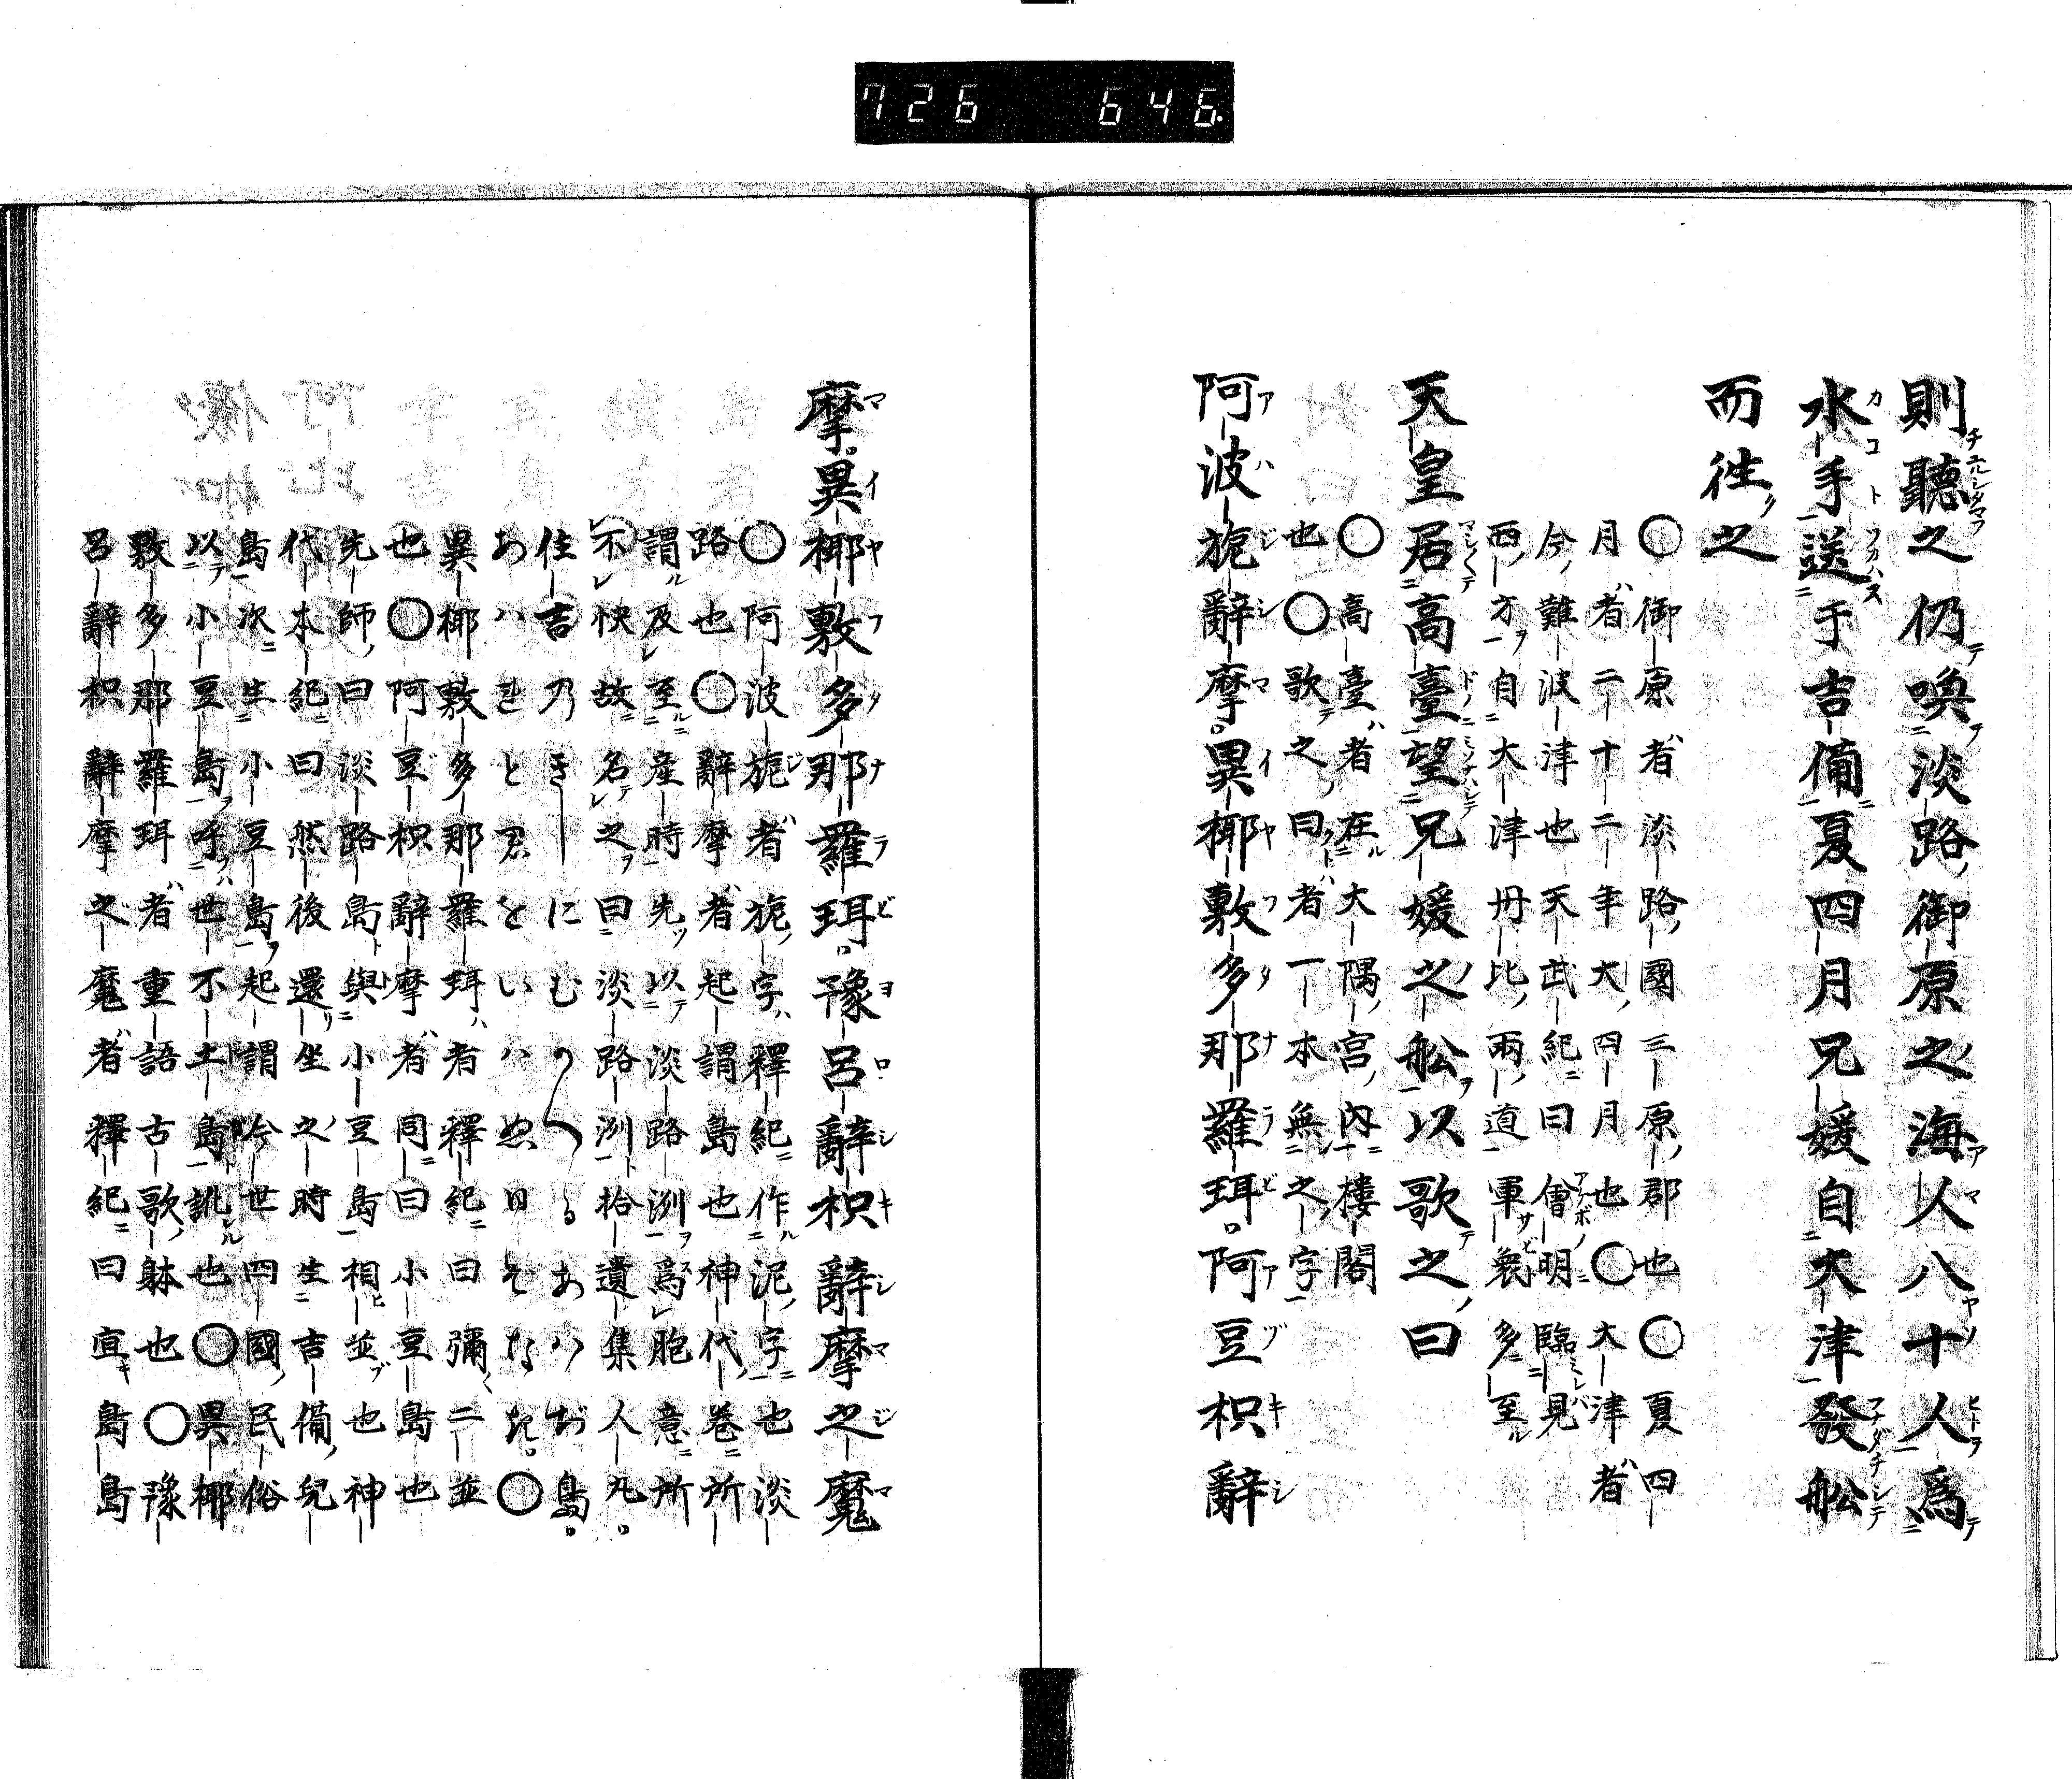 726 646
則聽之仍喚淡路御原之海人八十人爲
水手送于吉備夏四月兄媛自大津發舩
而徃之
〇御原者淡路國三原郡也〇夏四
月者二十二年大四月也〇大津者
今難波津也天武紀曰儈明臨見
西方自大津丹比兩道軍衆多至
天皇居高臺望兄媛之舩以歌之曰
〇高臺者在大隅宮內樓閣
也〇歌之曰者一本無之字
阿波旎辭摩異椰敷多那羅珥阿豆枳辭
摩異椰敷多那羅珥豫呂辭枳辭摩之魔
〇阿波旎者旎字釋紀作泥字也淡
路也〇辭摩者起謂島也神代卷所
謂及至產時先以淡路洲爲胞意所
不快故名之曰淡路洲拾遺集人丸
住吉乃きしにむつくるあハぢ島
あハれと君といハぬ日そなき〇
異椰敷多那羅珥者釋紀曰彌二並
也〇阿豆枳辭摩者同曰小豆島也
先師曰淡路島與小豆島相並也神
代本紀曰然後還坐之時生吉備兒
島次生小豆島起謂今世四國民俗
以小豆島呼世不土島訛也〇異椰
敷多那羅珥者重語古歌躰也〇豫
呂辭枳辭摩之魔者釋紀曰宜島島